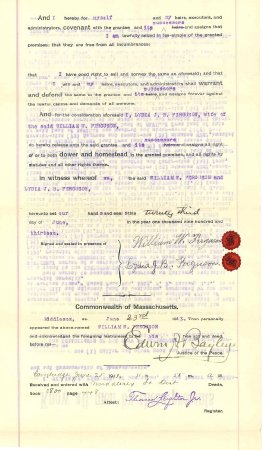 And I hereby for myself and my heirs, executors, and
successors
administrators, covenant with the grantee and its heirs and assigns that
I am lawfully seized in fee-simple of the granted
premises; that they are free from all incumbrances;
that I have good right to sell and convey the same as aforesaid; and that
successors
I will and my heirs, executors, and administrators shall warrant
and defend the same to the grantee and its heirs and assigns forever against
the lawful claims and demands of all persons.
And for the consideration aforesaid I, LYDIA J. B. FERGUSON, wife of
the said WILLIAM W. FERGUSON
successors
do hereby release unto the said grantee and its heirs and assigns all right
of or to both dower and homestead in the granted premises, and all rights by
statutes and all other rights therein.
In witness whereof we, the said WILLIAM W. FERGUSON and
LYDIA J. B. FERGUSON,
hereunto set our hand s and seal s this twenty third
day of June, in the year one thousand nine hundred and
thirteen.
Signed and sealed in presence of
William W. Ferguson
Lydia J. B. Ferguson
Commonwealth of Massachusetts.
Middlesex, ss. June 23rd 1913. Then personally
appeared the above-named WILLIAM W. FERGUSON
and acknowledged the foregoing instrument to be his free act and deed,
before me—
Edwin
Justice of the Peace.
Cambridge,
Received and entered with Deeds,
Book page
Register.